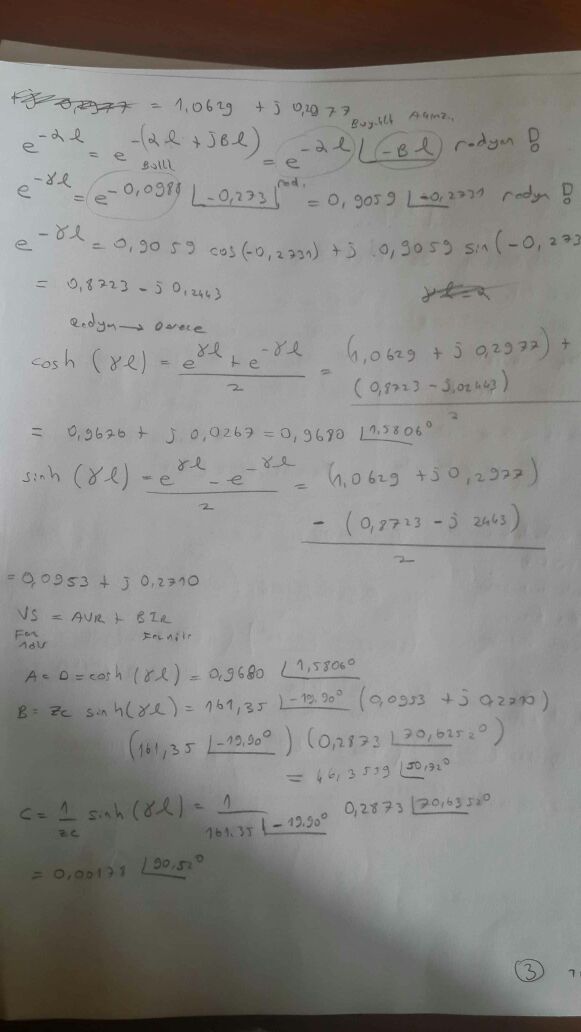 = 1,0629 + j 0,2977
e^-αl = e^-(αl + jβl) = e^-αl ∠-βl radyan !
e^-γl = e^-0,0988 ∠-0,273 rad. = 0,9059 ∠-0,2731 radyan !
e^-γl = 0,9059 cos(-0,2731) + j 0,9059 sin(-0,273
= 0,8723 - j 0,2443
Radyan → Derece
cosh (γl) = e^γl + e^-γl / 2 = (1,0629 + j 0,2977) + (0,8723 - j,02443) / 2
= 0,9676 + j 0,0267 = 0,9680 ∠1,5806°
sinh (γl) = e^γl - e^-γl / 2 = (1,0629 + j 0,2977) - (0,8723 - j 2443) / 2
= 0,0953 + j 0,2710
VS = AVR + BIR
A = D = cosh (γl) = 0,9680 ∠1,5806°
B = Zc sinh(γl) = 161,35 ∠-19.90° (0,0953 + j 0,2710)
(161,35 ∠-19,90°) (0,2873 ∠70,6252°)
= 46,3559 ∠50,72°
C = 1/Zc sinh (γl) = 1 / 161.35 ∠-19.90° 0,2873 ∠70,6352°
= 0,00178 ∠90,52°
3